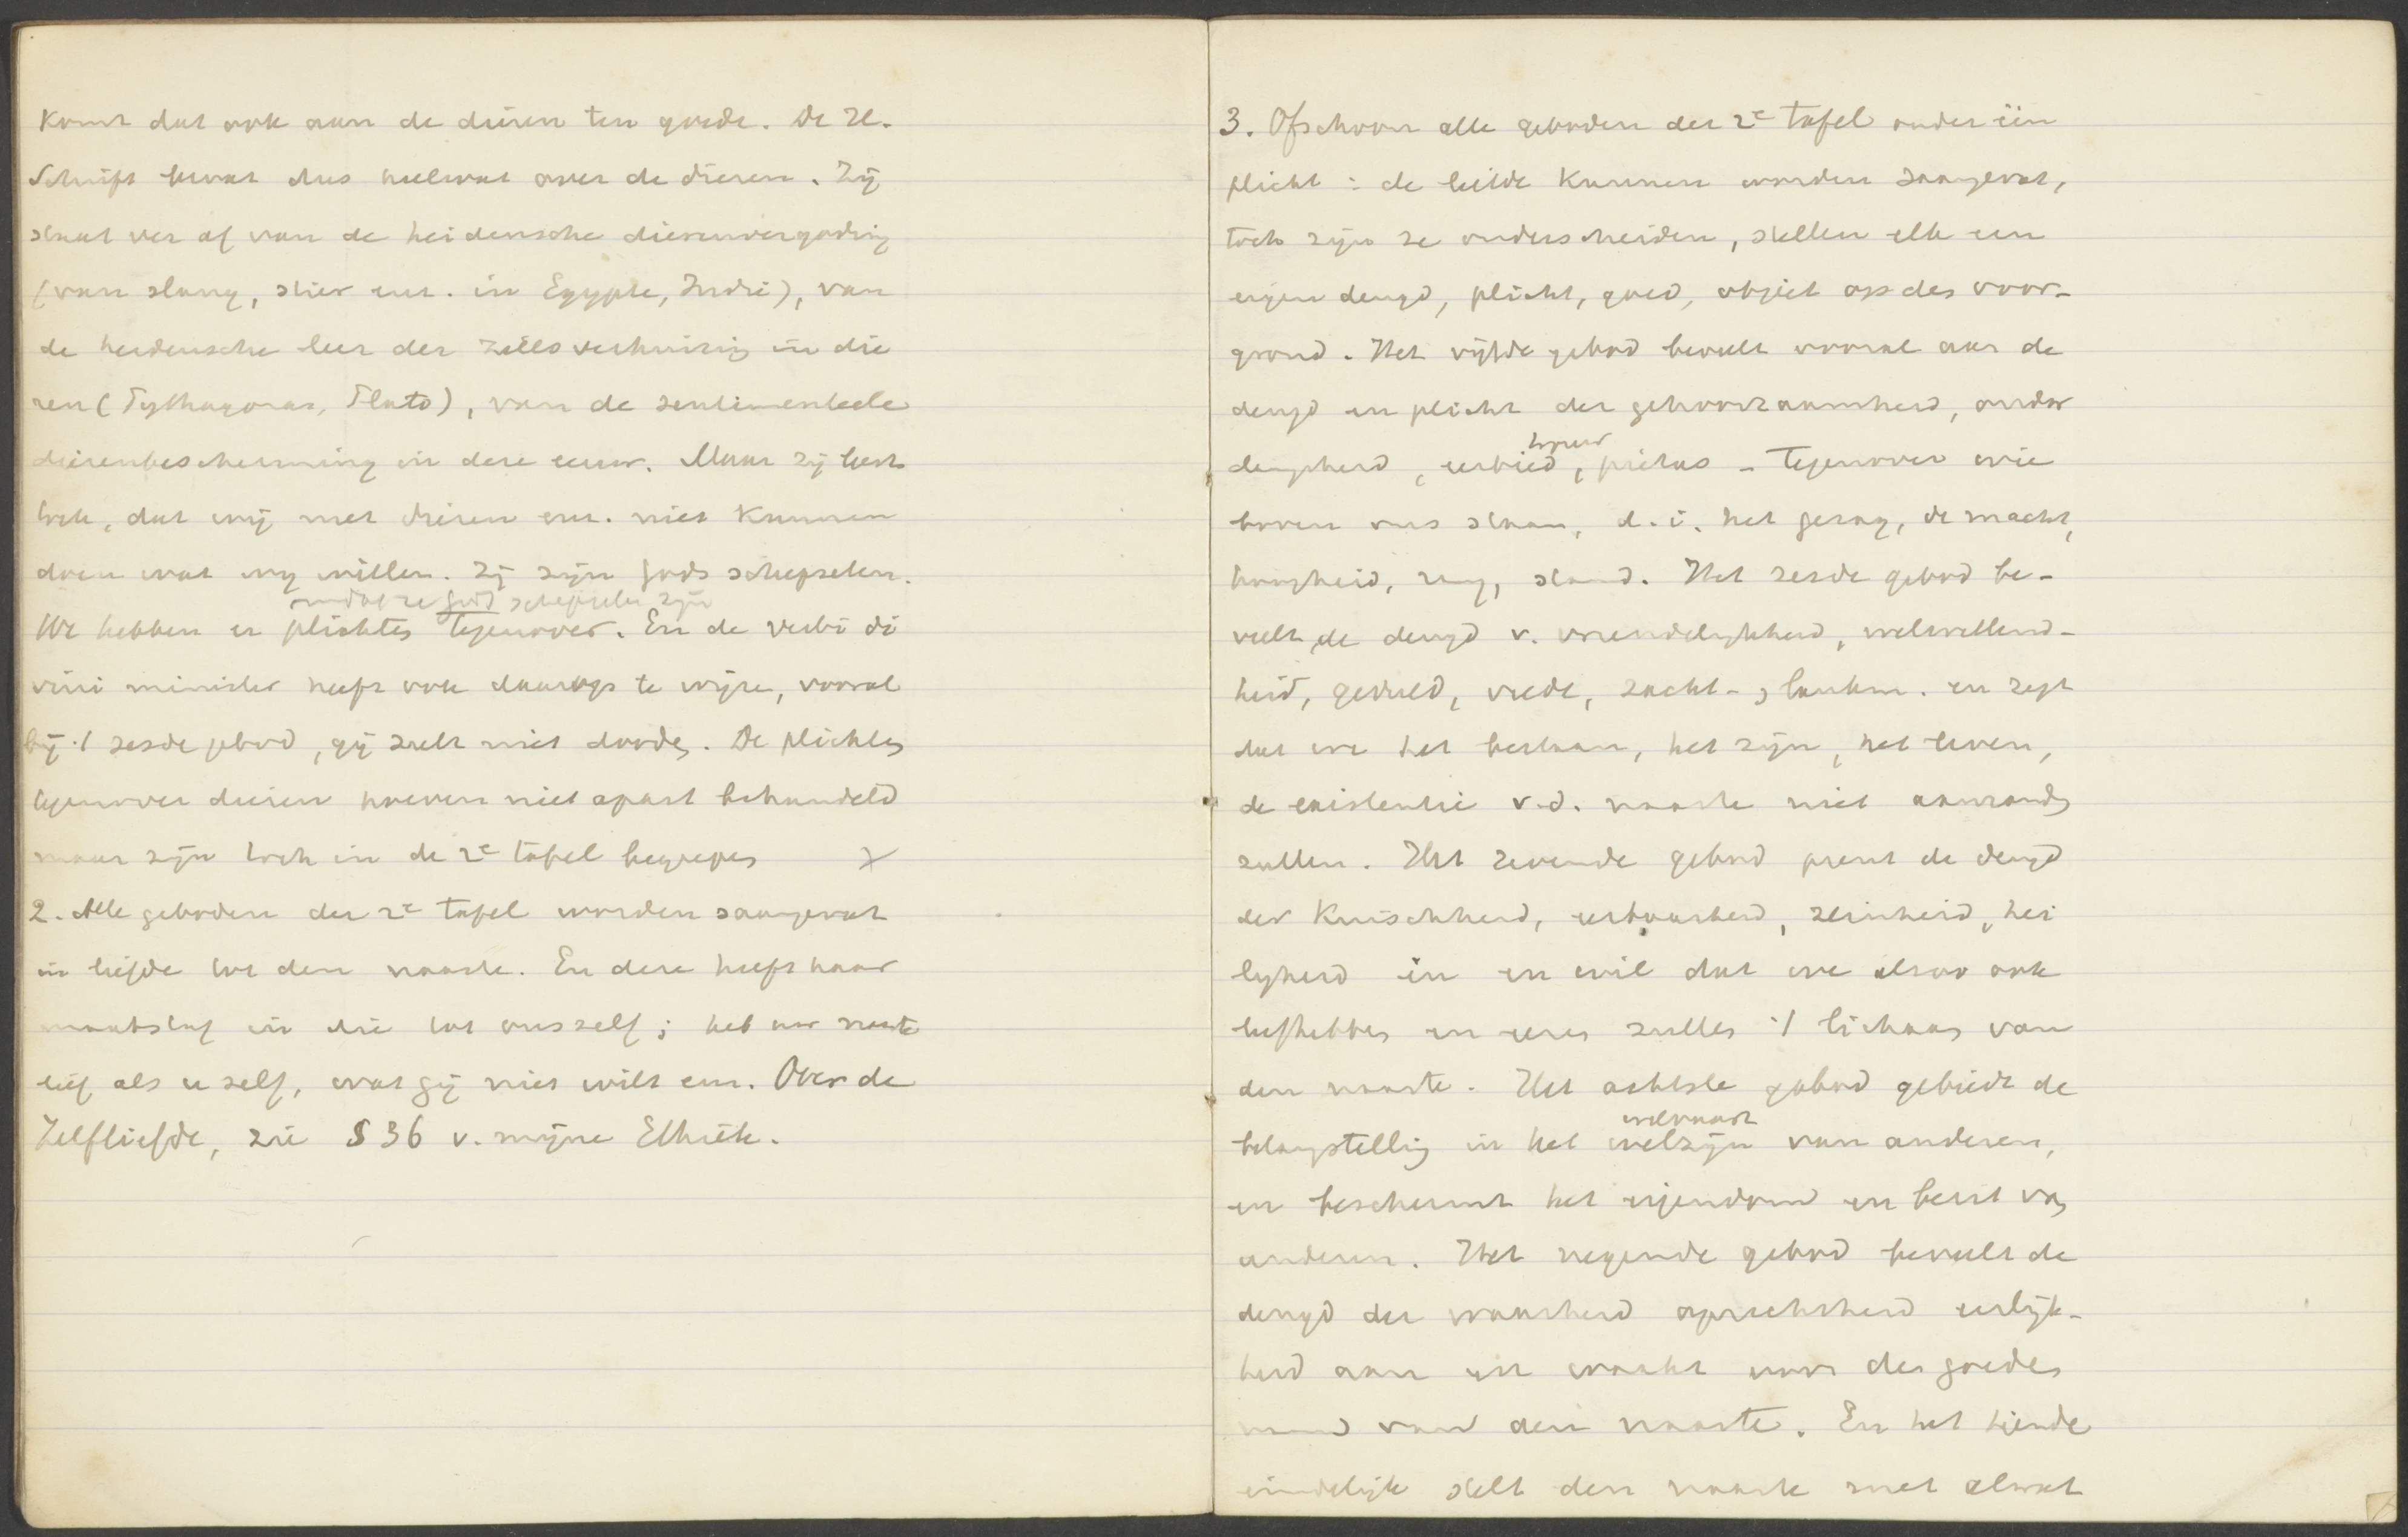 komt dat ook aan de dieren ten goede. De H.
Schrift bevat dus heelwat over de dieren. Zij
staat ver af van de heidensche dierenvergoding
(van slang, stier enz. in Egypte, Indië), van
de heidensche leer der zielsverhuizing in die
ren (Pythagoras, Plato), van de sentimenteele
dierenbescherming in deze eeuw. Maar zij leert
toch, dat wij met dieren enz. niet kunnen
doen wat wij willen. Zij zijn Gods schepselen.
omdat ze Gods schepselen zijn
We hebben er plichten tegenover. En de verbi di
vini minister heeft ook daarop te wijzen, vooral
bij 't zesde gebod, gij zult niet dooden. De plichten
tegenover dieren hoeven niet apart behandeld
maar zijn toch in de 2e tafel begrepen
2. Alle geboden der 2e tafel worden saamgevat
in liefde tot den naaste. En deze heeft haar
maatstaf in die tot onszelf; heb uw naaste
lief als u zelf, wat gij niet wilt enz. Over de
Zelfliefde, zie § 36 v. mijne Ethiek.
3. Ofschoon alle geboden der 2e tafel onder één
plicht: de liefde kunnen worden saamgevat,
toch zijn ze onderscheiden, stellen elk een
eigen deugd, plicht, goed, object op den voor-
grond. Het vijfde gebod beveelt vooral aan de
deugd en plicht der gehoorzaamheid, onder
danigheid, eerbied, piëtas - tegenover wie
boven ons staan, d.i. het gezag, de macht,
hoogheid, rang, stand. Het zesde gebod be-
veelt de deugd v. vriendelijkheid, welwillend-
heid, geduld, vrede, zacht-, lankm. en zegt
dat we het bestaan, het zijn, het leven,
de existentie v.d. naaste niet aanranden
zullen. Het zevende gebod prent de deugd
der kuischheid, eerbaarheid, reinheid, hei
ligheid in en wil dat we alzoo ook
liefhebben en eeren zullen 't lichaam van
den naaste. Het achtste gebod gebiedt de
welvaart
belangstelling in het welzijn van anderen,
en beschermt het eigendom en bezit van
anderen. Het negende gebod beveelt de
deugd der waarheid oprechtheid eerlijk-
heid aan en waakt voor den goeden
naam van den naaste. En het tiende
eindelijk stelt den naaste met alwat